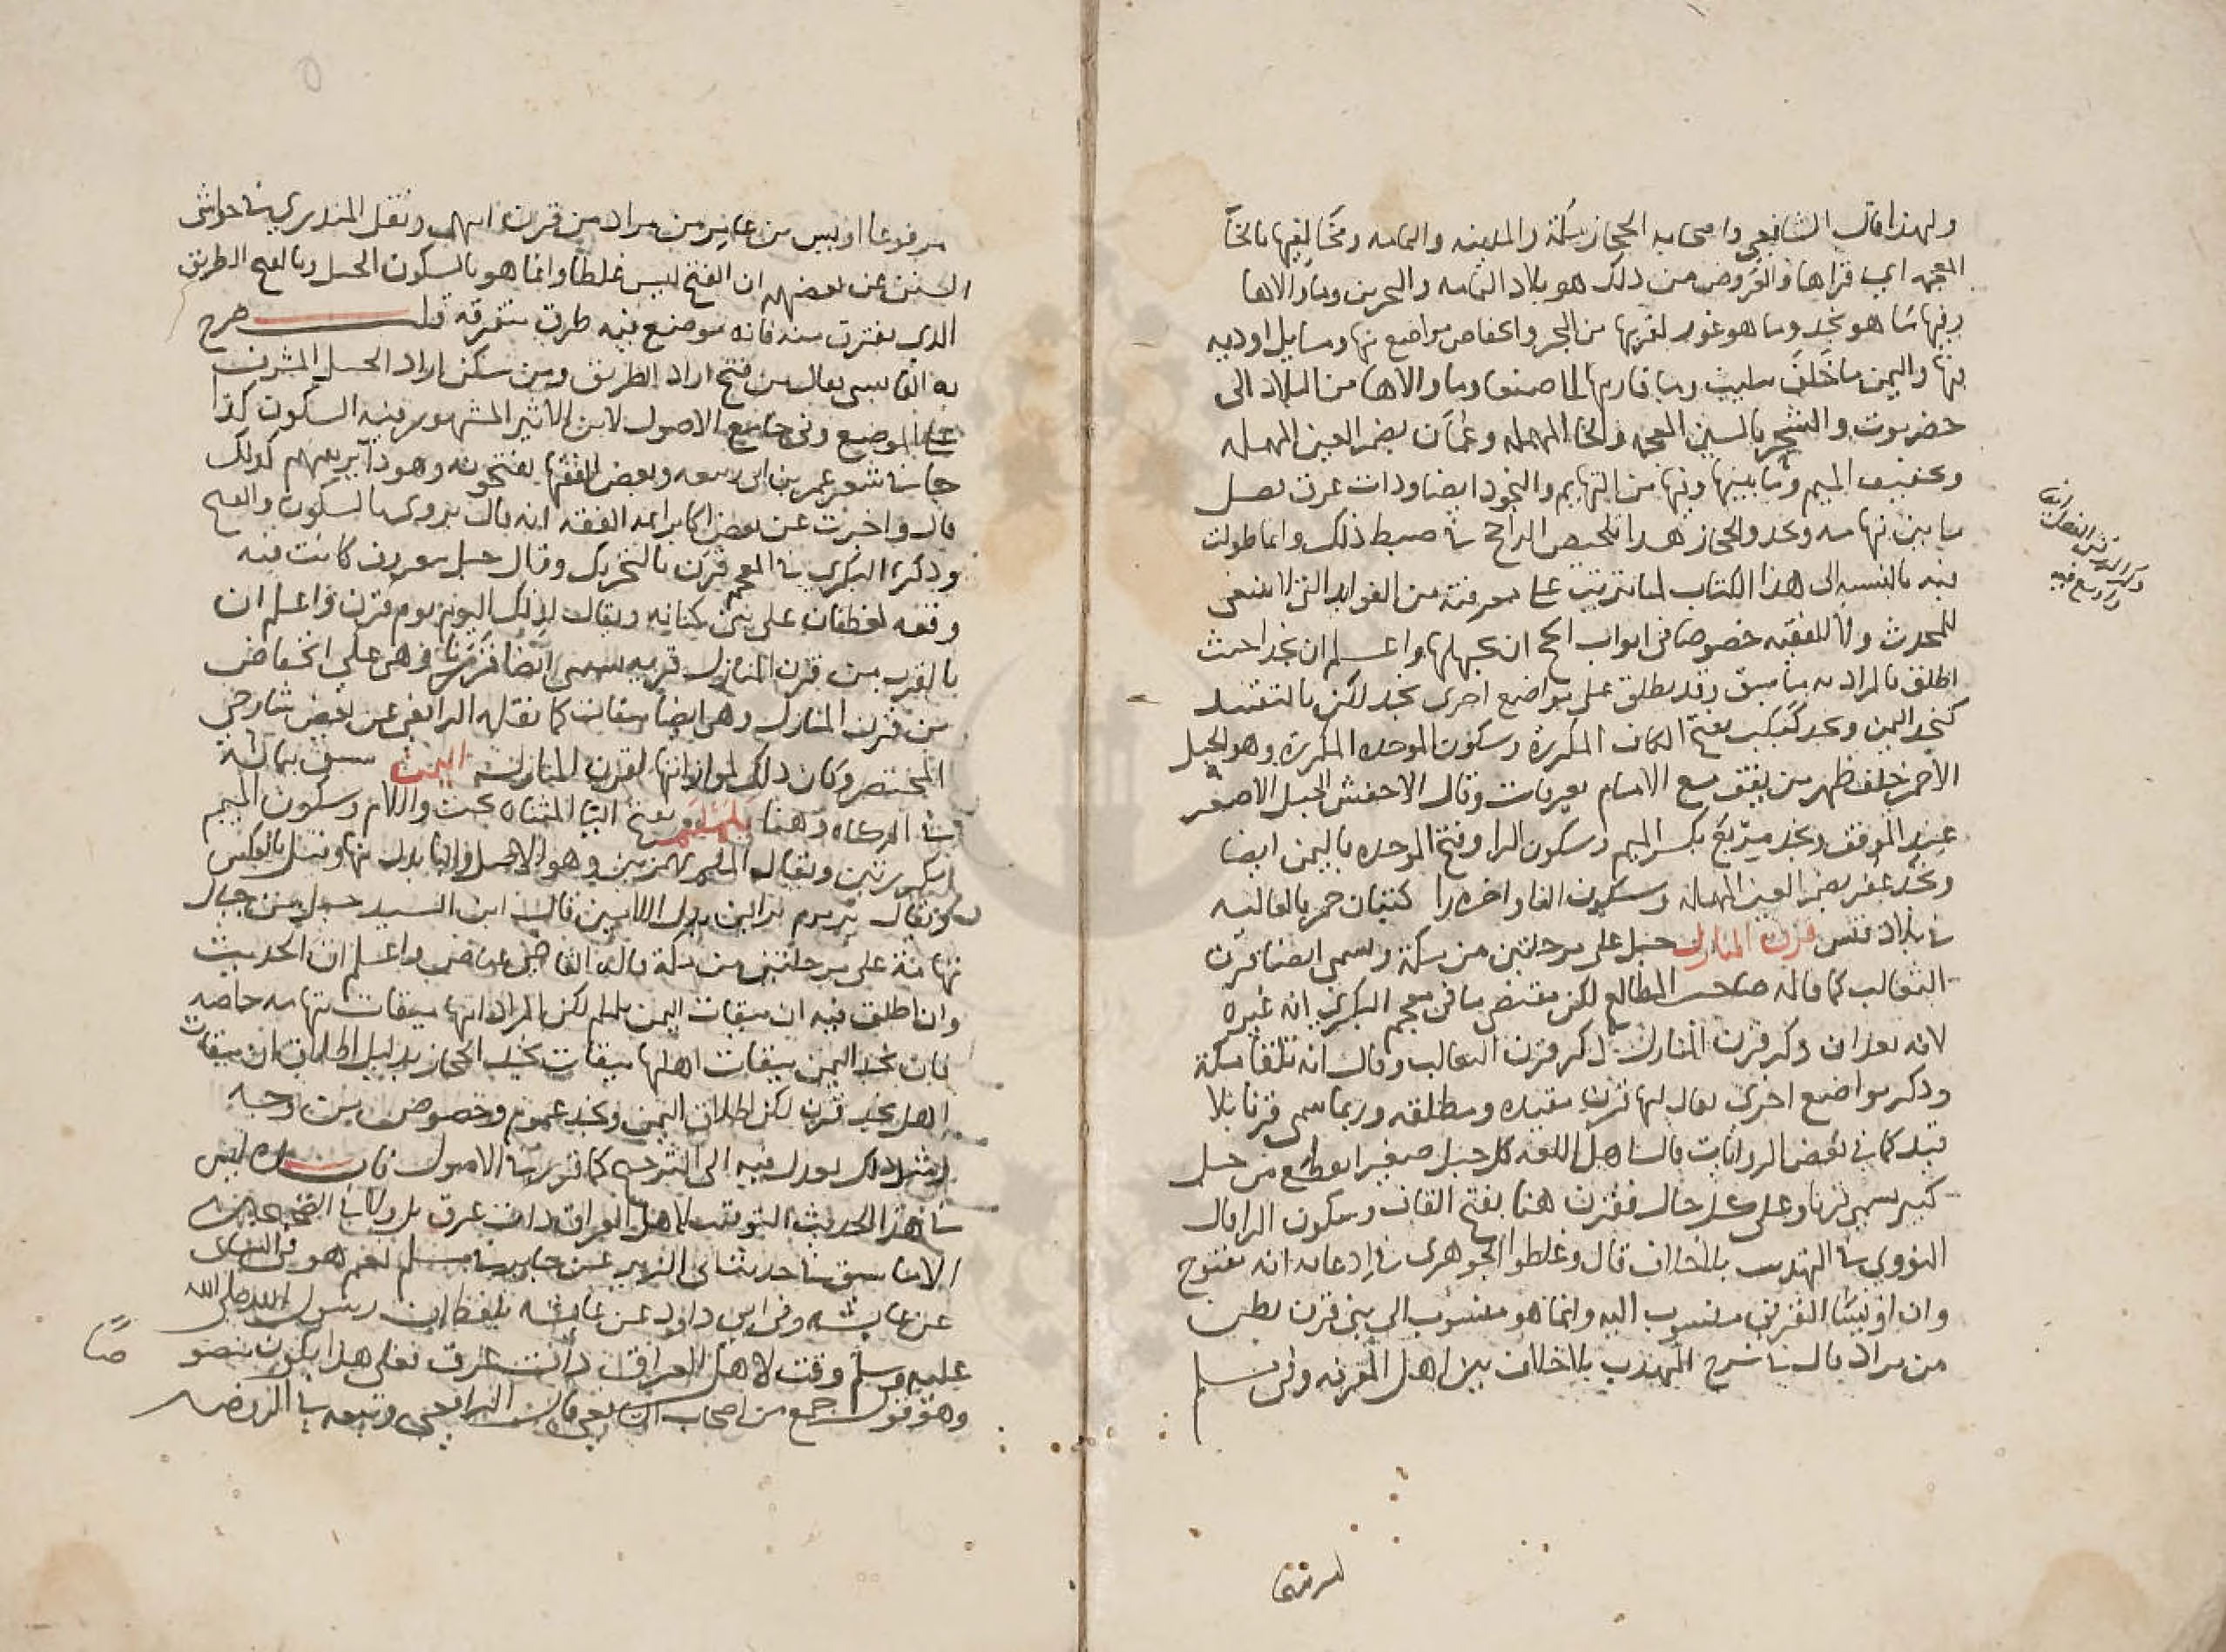 ولهذا قال الشافعي واصحابه الحجاز مكة والمدينه واليمامه ومخاليفها بالخا
المعجمه اي قراها والعروض من ذلك هو بلاد اليمامه والبحرين وما والاها
وفيها ما هو نجد وما هو غور لقربها من البحر وانخفاض مواضع منها ومسايل اوديه
منها واليمن ما خلف تثليث وما قاربها الى صنعا وما والاها من البلاد الى
حضرموت والشحر بالشين المعجمه والحا المهمله وعمان بضم العين المهمله
وتخفيف الميم وما بينها ومنها من التهايم والنجود ايضا وذات عرق فصل
ما بين تهامه ونجد والحجاز هذا تلخيص الراجح في ضبط ذلك وانما طولت
فيه بالنسبه الى هذا الكتاب لما ترتب على معرفته من الفوايد التي لا ينبغي
للمحدث ولا للفقيه خصوصا في ابواب الحج ان يجهلها واعلم ان نجد احيث
اطلق فالمراد به ما سبق وقد يطلق على مواضع اخرى نجد لكن بالتقييد
كنجد اليمن ونجد كبكب بفتح الكاف المكررة وسكون الموحده المكررة وهو الجبل
الاحمر خلف ظهر من يقف مع الامام بعرفات وقال الاخفش الجبل الاصغر
عند الموقف ونجد مربع بكسر الميم وسكون الرا وفتح الموحده باليمن ايضا
ونجد عفر بضم العين المهمله وسكون الفا واخره را كثبان حمر بالعاليه
في بلاد قيس قرن المنازل جبل على مرحلتين من مكة ويسمى ايضا قرن
الثعالب كما قاله صاحب المطالع لكن مقتضى ما في معجم البكري انه غيره
لانه بعد ان ذكر قرن المنازل ذكر قرن الثعالب وقال انه تلقا مكة
وذكر مواضع اخرى يقال لها قرن مقيده ومطلقه وربما سمى قرنا بلا
قيد كما في بعض الروايات قال اهل اللغه كل جبل صغير انقطع من جبل
كبير يسمى قرنا وعلى كل حال فقرن هنا بفتح القاف وسكون الرا قال
النووي في التهذيب بلا خلاف قال وغلطوا الجوهري في ادعائه انه مفتوح
وان اويسا القرني منسوب اليه وانما هو منسوب الى بني قرن بطن
من مراد قال في شرح المهذب بلا خلاف بين اهل المعرفه وفي مسلم
مرفوعا اويس بن عامر من مراد من قرن انتهى ونقل المنذري في حواشي
السنن عن بعضهم ان الفتح ليس غلطا وانما هو بالسكون الجبل وبالفتح الطريق
الذي يفترق منه فانه موضع فيه طرق متفرقه قلت صرح
به القابسي فقال من فتح اراد الطريق ومن سكن اراد الجبل المشرف
على الموضع وفي جامع الاصول لابن الاثير المشهور فيه السكون كذا
جا في شعر عمر بن ابي ربيعه وبعض الفقها يفتحونه وهو داير بينهم كذلك
قال واخبرت عن بعض اكابر ايمة الفقه انه قال يروى بالسكون والفتح
وذكره البكري في المعجم قرن بالتحريك وقال جبل معروف كانت فيه
وقعه لغطفان على بني كنانه ويقال لذلك اليوم يوم قرن واعلم ان
بالقرب من قرن المنازل قريه تسمى ايضا قرنا وهي على انخفاض
من قرن المنازل وهي ايضا ميقات كما نقله الرافعي عن بعض شارحي
المختصر وكان ذلك لموازاتها لقرن المنازل اليمن سبق بيانه
في الزكاه وهنا يلملم بفتح اليا المثناه تحت واللام وسكون الميم
ويقال الملم بهمزه وهو الاصل واليا بدل منها وقيل بالعكس
ويقال يرمرم براين بدل اللامين قال ابن السيد جبل من جبال
تهامة على مرحلتين من مكة قال القاضي عياض واعلم ان الحديث
وان اطلق فيه ان ميقات اليمن يلملم لكن المراد انها ميقات تهامه خاصه
فان نجد اليمن ميقات اهلها ميقات نجد الحجاز بدليل اطلاق ان ميقات
اهل نجد قرن لكن اطلاق اليمن ونجد عموم وخصوص من وجه
ومثل ذلك يعدل فيه الى الترجيح كما قرر في الاصول ليس
في هذا الحديث التوقيت لاهل العراق ذات عرق
الا ما سبق في حديث ابي الزبير عن جابر في مسلم نعم هو في النساي
عن عايشه وفي ابي داود عن عايشه بلفظ ان رسول الله صلى الله
عليه وسلم وقت لاهل العراق ذات عرق فعلى هذا يكون منصو صا
وهو قول جمع من اصحاب الشافعي قال الرافعي وتبعه في الروضه